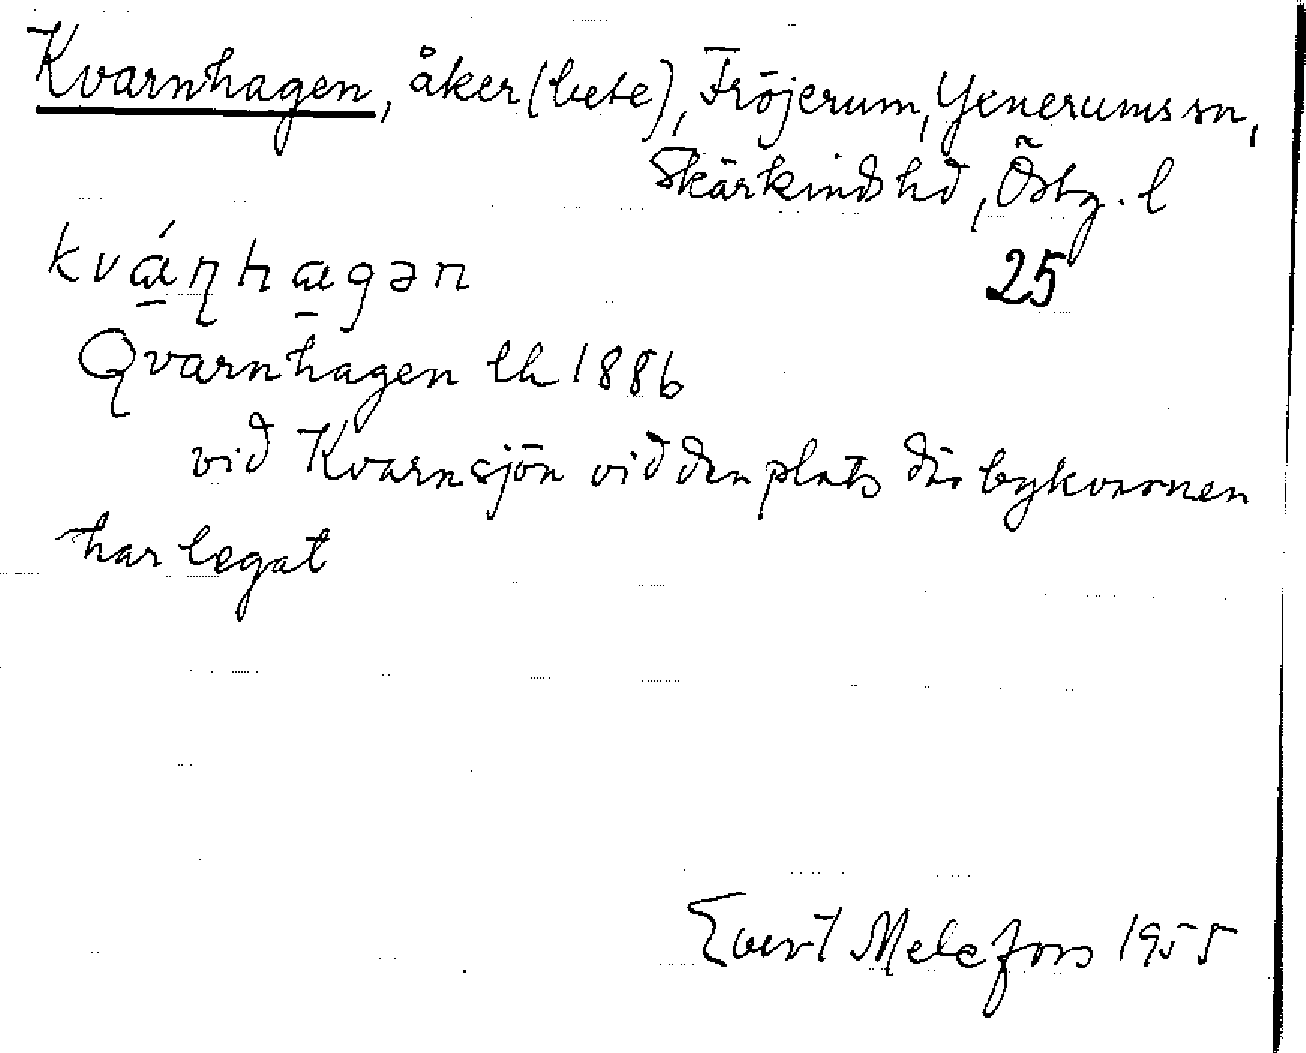 Kvarnhagen, åker (bete), Fröjerum, Yxnerums sn,
Skärkinds hd, Östg. l
kvá̱ɳha̱gən
25
Qvarnhagen lh 1886
vid Kvarnsjön vid den plats där bykvarnen
har legat
Evert Melefors 1955